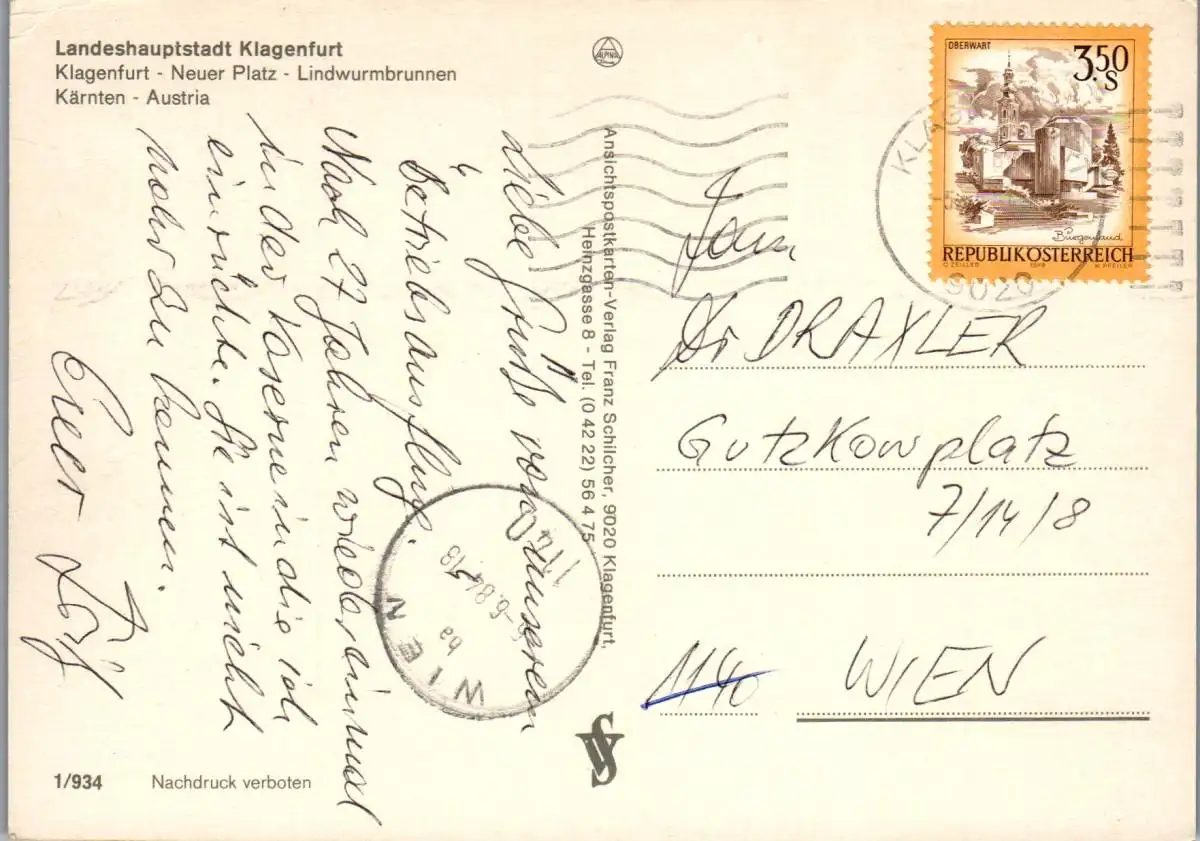 Landeshauptstadt Klagenfurt
Klagenfurt - Neuer Platz - Lindwurmbrunnen
Kärnten - Austria
Liebe Grüße vom unserem
Betriebsausflug.
Nach 27 Jahren wieder einmal
in der Kaserne in die ich
einrückte. Sie ist nicht
mehr zu kennen.
Euer
1/934
Nachdruck verboten
Ansichtspostkarten-Verlag Franz Schilcher, 9020 Klagenfurt,
Heinzgasse 8 - Tel. (0 42 22) 56 4 75
ALPINA
OBERWART
3.50
S
Burgenland
REPUBLIK ÖSTERREICH
O. ZEILLER
1978
W. PFEILER
KLAG
9020
Fam
Dr DRAXLER
Gutzkowplatz
7/14/8
1140
WIEN
1140
-6.6.84.18
ba
WIEN